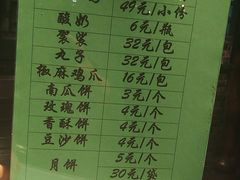 49元/小份
酸奶 6元/瓶
袈裟 32元/包
丸子 32元/包
椒麻鸡爪 16元/包
南瓜饼 3元/个
玫瑰饼 4元/个
香酥饼 4元/个
豆沙饼 4元/个
月饼 5元/个
30元/袋